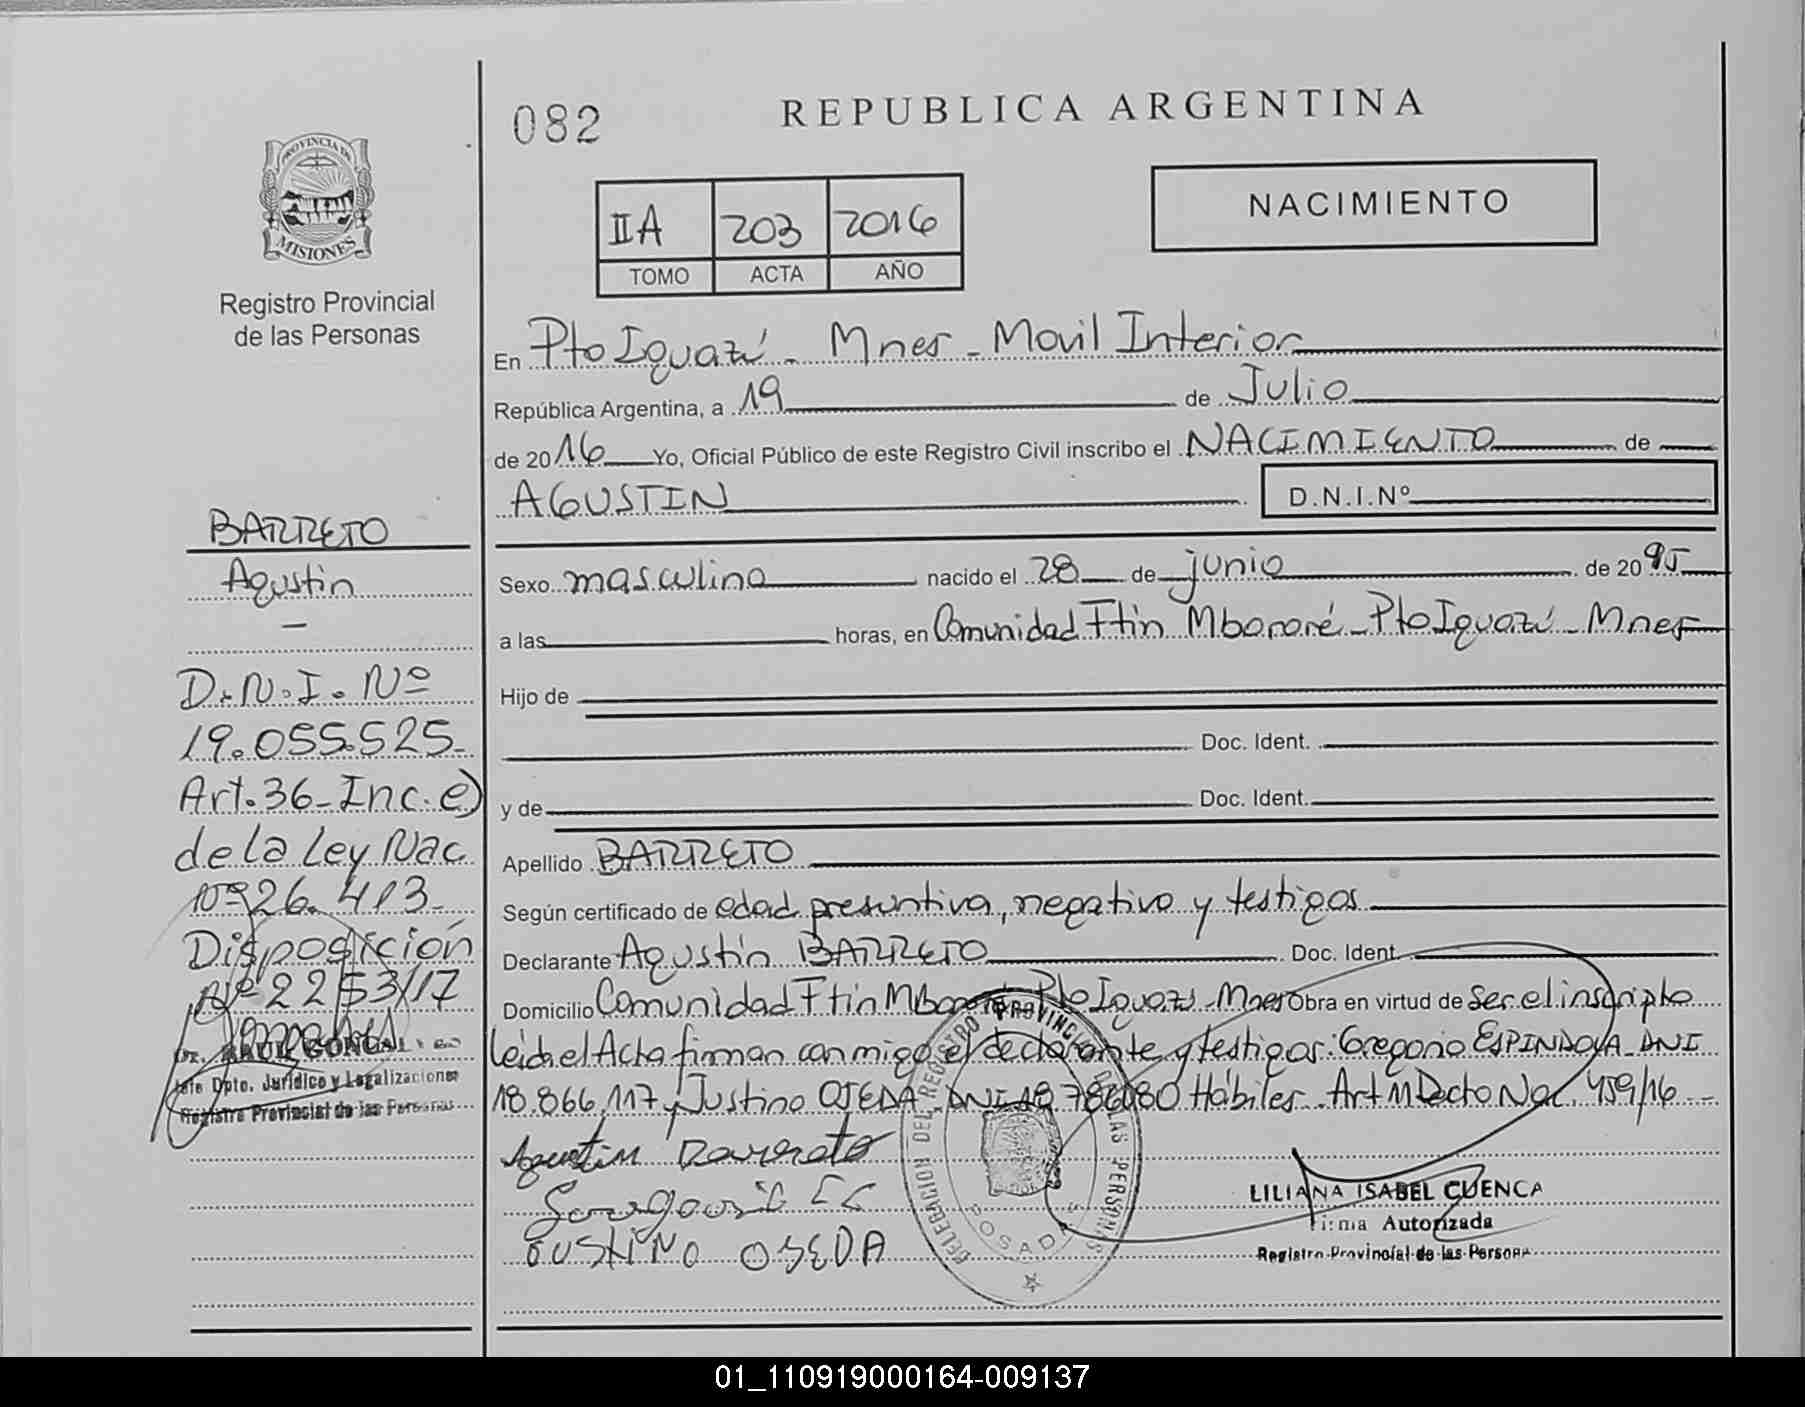 082
REPUBLICA ARGENTINA
PROVINCIA DE
MISIONES
Registro Provincial
de las Personas
IIA 203 2016
TOMO ACTA AÑO
NACIMIENTO
En Pto Iguazú - Mnes - Movil Interior
República Argentina, a 19 de Julio
de 2016 Yo, Oficial Público de este Registro Civil inscribo el NACIMIENTO de
AGUSTIN D.N.I.Nº
Sexo masculino nacido el 28 de junio de 2095
a las horas, en Comunidad Ftin Mbororé - Pto Iguazú - Mnes
Hijo de
Doc. Ident.
y de Doc. Ident.
Apellido BARRETO
Según certificado de edad presuntiva, negativo y testigos
Declarante Agustín BARRETO Doc. Ident.
Domicilio Comunidad Ftin Mbororé Pto Iguazú - Mnes Obra en virtud de ser el inscripto
Leída el Acta firman conmigo el declarante y testigos: Gregorio ESPINDOLA - DNI
18.866.117 y Justino OJEDA - DNI Hábiles - Art 11 Decto Nac. 459/16 -
Agustin Barreto
JUSTINO OJEDA
DELEGACION DEL REGISTRO PROVINCIAL DE LAS PERSONAS
POSADAS
LILIANA ISABEL CUENCA
Firma Autorizada
Registro Provincial de las Personas
BARRETO
Agustin
-
D.N.I. Nº
19.055.525-
Art. 36 - Inc. e)
de la Ley Nac
nº 26.413-
Disposición
Nº 2253/17
Dr. RAUL
Jefe Dpto. Jurídico y Legalizaciones
Registro Provincial de las Personas
01_110919000164-009137